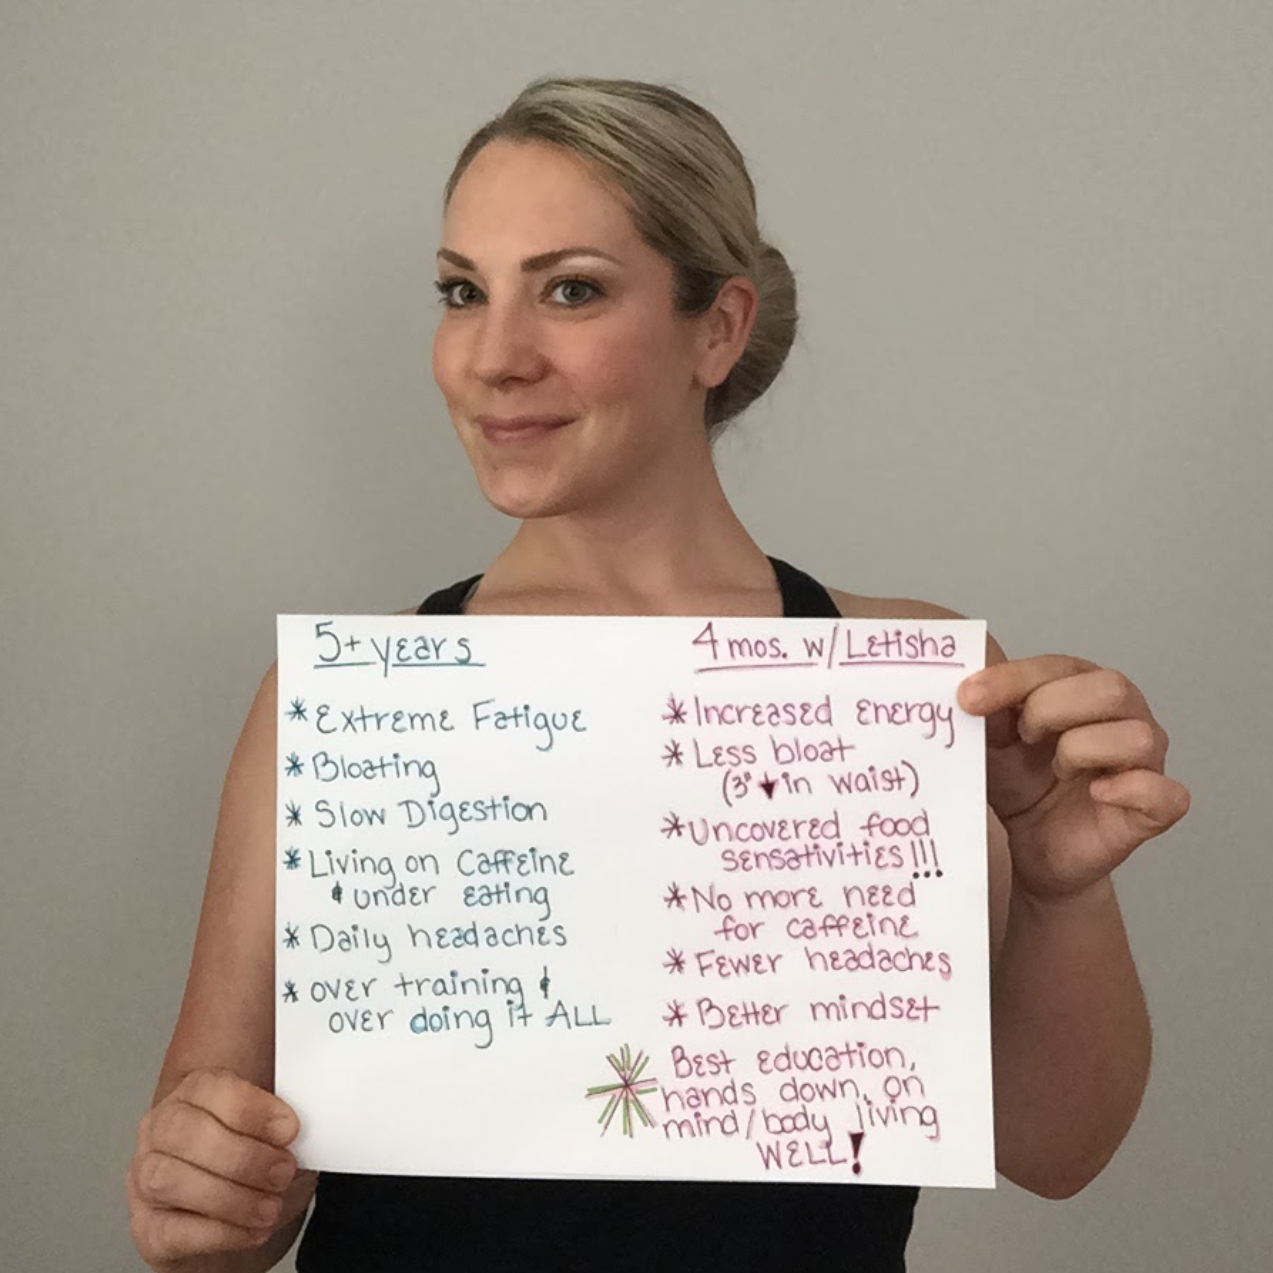 5+ years
* Extreme Fatigue
* Bloating
* Slow Digestion
* Living on Caffeine
& under eating
* Daily headaches
* over training &
over doing it ALL
4 mos. w/ Letisha
* Increased Energy
* Less bloat
(3" ↓ in waist)
* Uncovered food
sensativities!!!
* No more need
for caffeine
* Fewer headaches
* Better mindset
* Best education,
hands down, on
mind/body living
WELL!